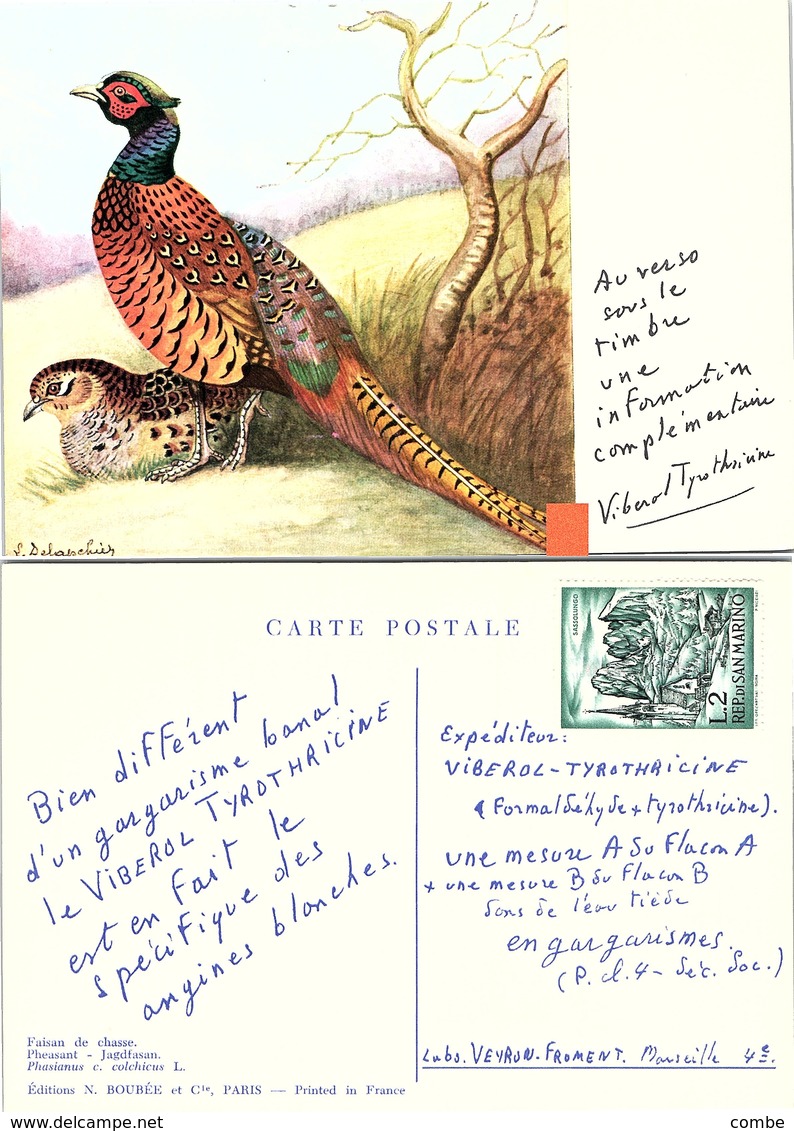 Au verso
sous le
timbre
une
information
complémentaire
Viberol Tyrothricine
CARTE POSTALE
SASSOLUNGO
L.2
REP. DI SAN MARINO
Bien différent
d'un gargarisme banal
le VIBEROL TYROTHRICINE
est en fait le
spécifique des
angines blanches.
Expéditeur:
VIBEROL-TYROTHRICINE
(Formaldéhyde + tyrothricine).
une mesure A du Flacon A
+ une mesure B du Flacon B
dans de l'eau tiède
en gargarismes.
(P. cl. 4 - Séc. Soc.)
Labo. VEYRON-FROMENT. Marseille 4e.
Faisan de chasse.
Pheasant - Jagdfasan.
Phasianus c. colchicus L.
Éditions N. BOUBÉE et Cie, PARIS — Printed in France
delcampe.net
combe